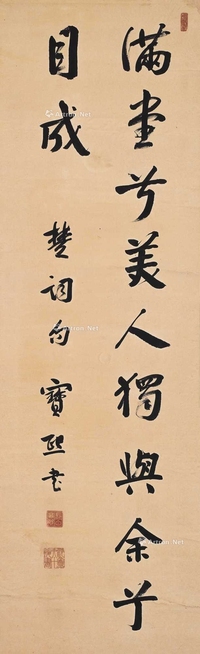 满堂兮美人獨與余兮
目成
楚詞句 寶熙書